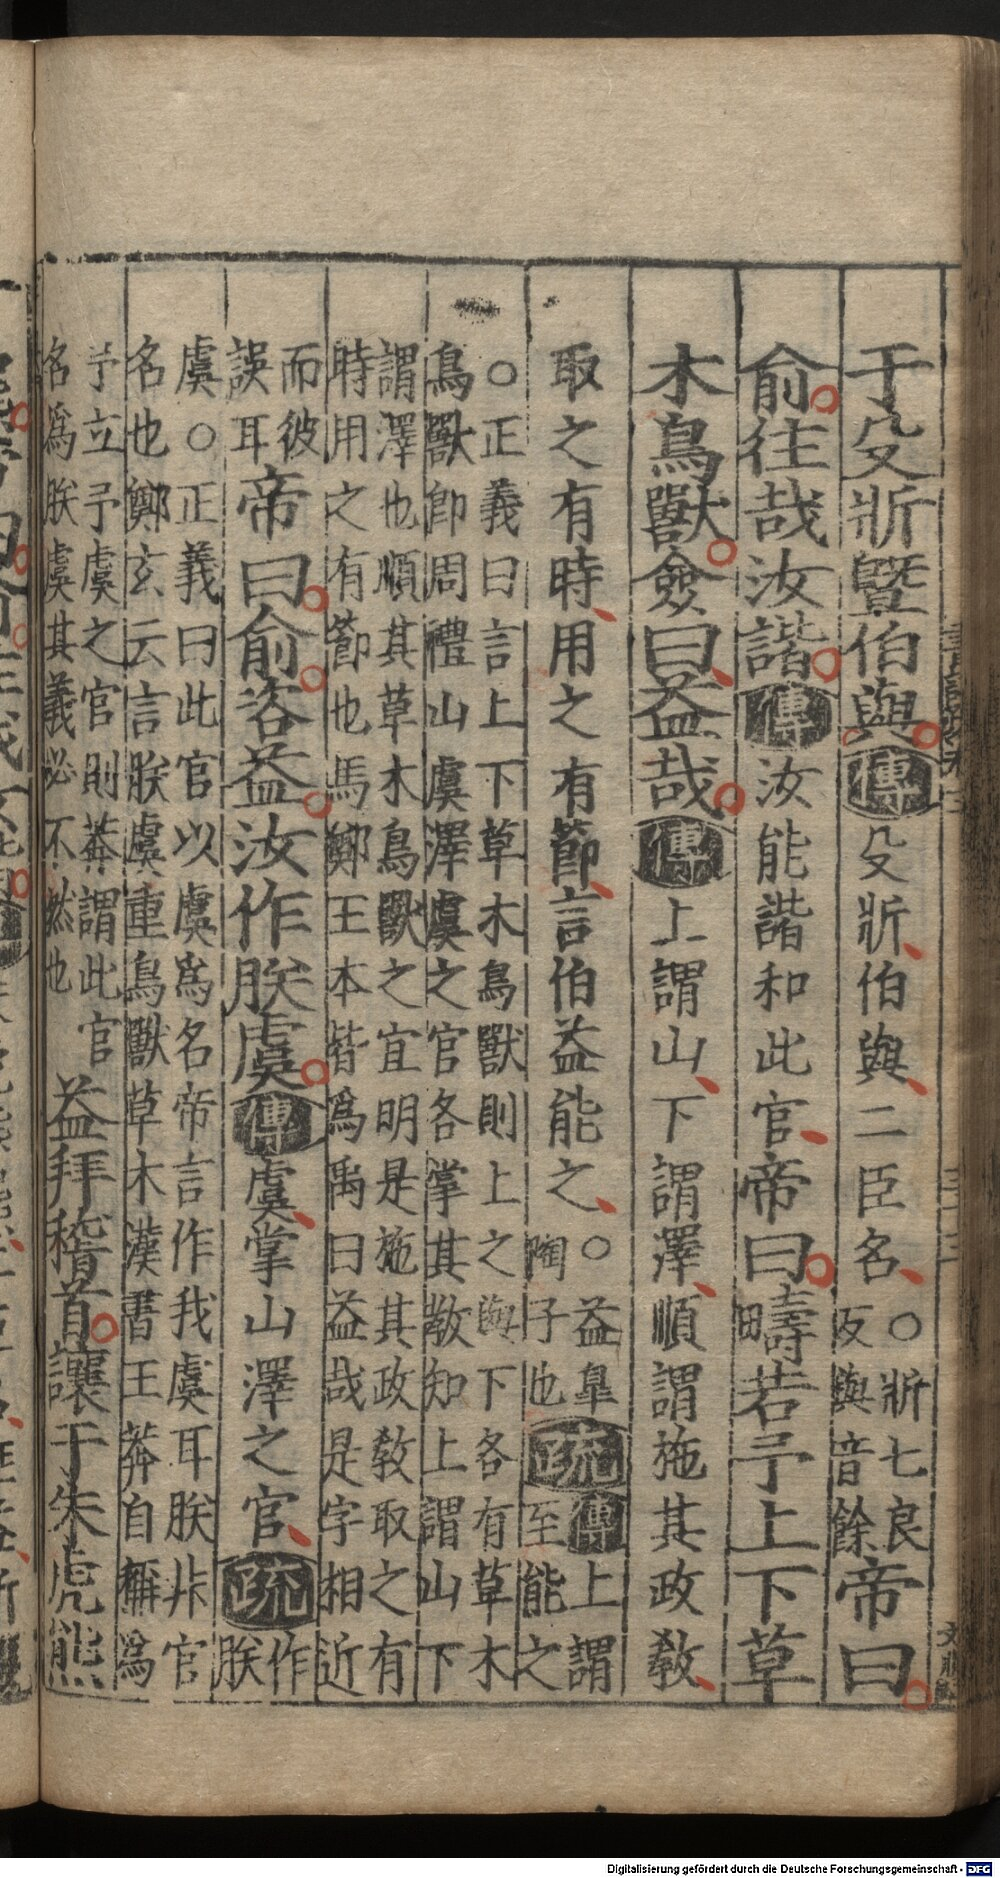 于殳斨暨伯與傳殳斨伯與二臣名○斨七良反與音餘帝曰
俞往哉汝諧傳汝能諧和此官帝曰疇若予上下草
木鳥獸僉曰益哉傳上謂山下謂澤順謂施其政敎
取之有時用之有節言伯益能之○益皐陶子也疏傳上謂至能之
○正義曰言上下草木鳥獸則上之與下各有草木
鳥獸卽周禮山虞澤虞之官各掌其敎知上謂山下
謂澤也順其草木鳥獸之宜明是施其政敎取之有
時用之有節也馬鄭王本皆爲禹曰益哉是字相近
而彼誤耳帝曰俞咨益汝作朕虞傳虞掌山澤之官疏作朕
虞○正義曰此官以虞爲名帝言作我虞耳朕非官
名也鄭玄云言朕虞重鳥獸草木漢書王莽自稱爲
予立予虞之官則莽謂此官
名爲朕虞其義必不然也益拜稽首讓于朱虎熊
Digitalisierung gefördert durch die Deutsche Forschungsgemeinschaft - DFG